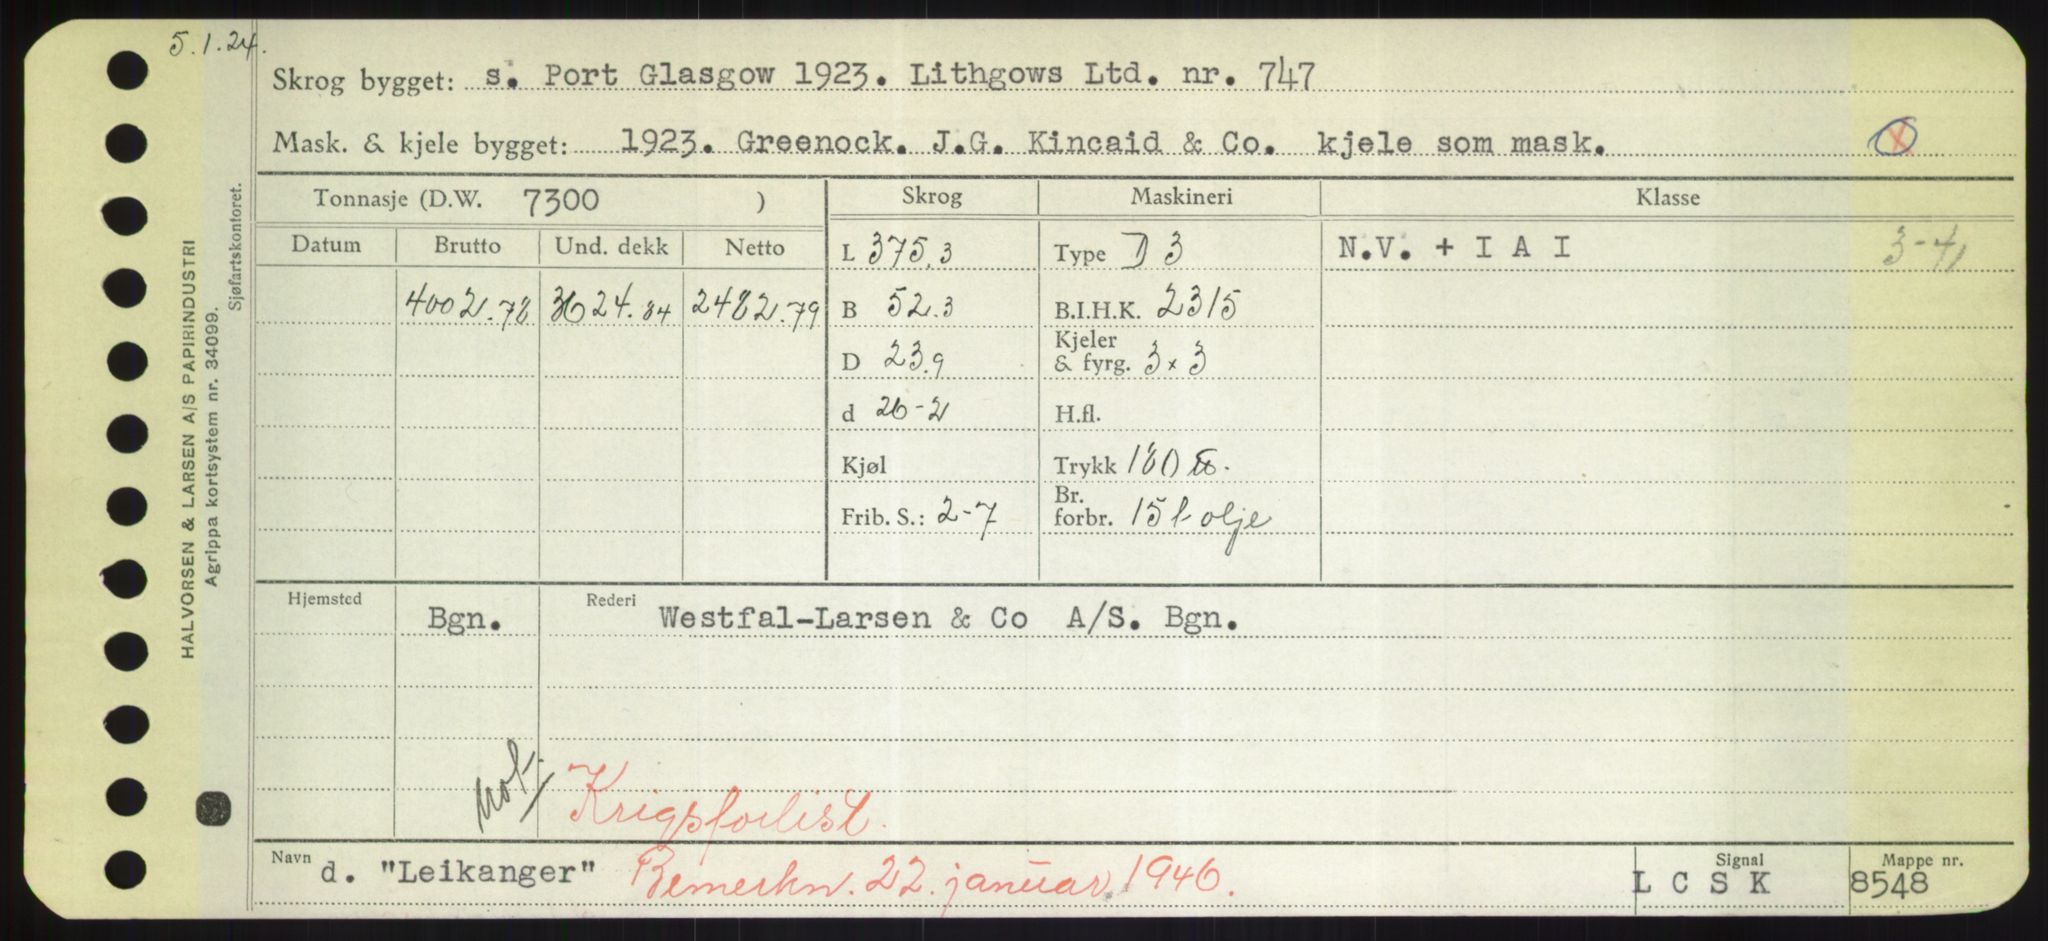 5.1.24.
Skrog bygget: s. Port Glasgow 1923. Lithgows Ltd. nr. 747
Mask. & kjele bygget: 1923. Greenock. J.G. Kincaid & Co. kjele som mask.
X
Tonnasje (D.W. 7300 ) Skrog Maskineri Klasse
Datum Brutto Und. dekk Netto L 375.3 Type D 3 N.V. + I A I 3-41
4002.78 3624.84 2482.79 B 52.3 B.I.H.K. 2315
D 23.9 Kjeler & fyrg. 3 x 3
d 26-2 H.fl.
Kjøl Trykk 180
Frib. S.: 2-7 Br. forbr. 15 t olje
Hjemsted Bgn. Rederi Westfal-Larsen & Co A/S. Bgn.
Krigsforlist.
Navn d. "Leikanger" Bemerkn. 22. januar 1946. Signal L C S K Mappe nr. 8548
HALVORSEN & LARSEN A/S PAPIRINDUSTRI
Agrippa kortsystem nr. 34099.
Sjøfartskontoret.